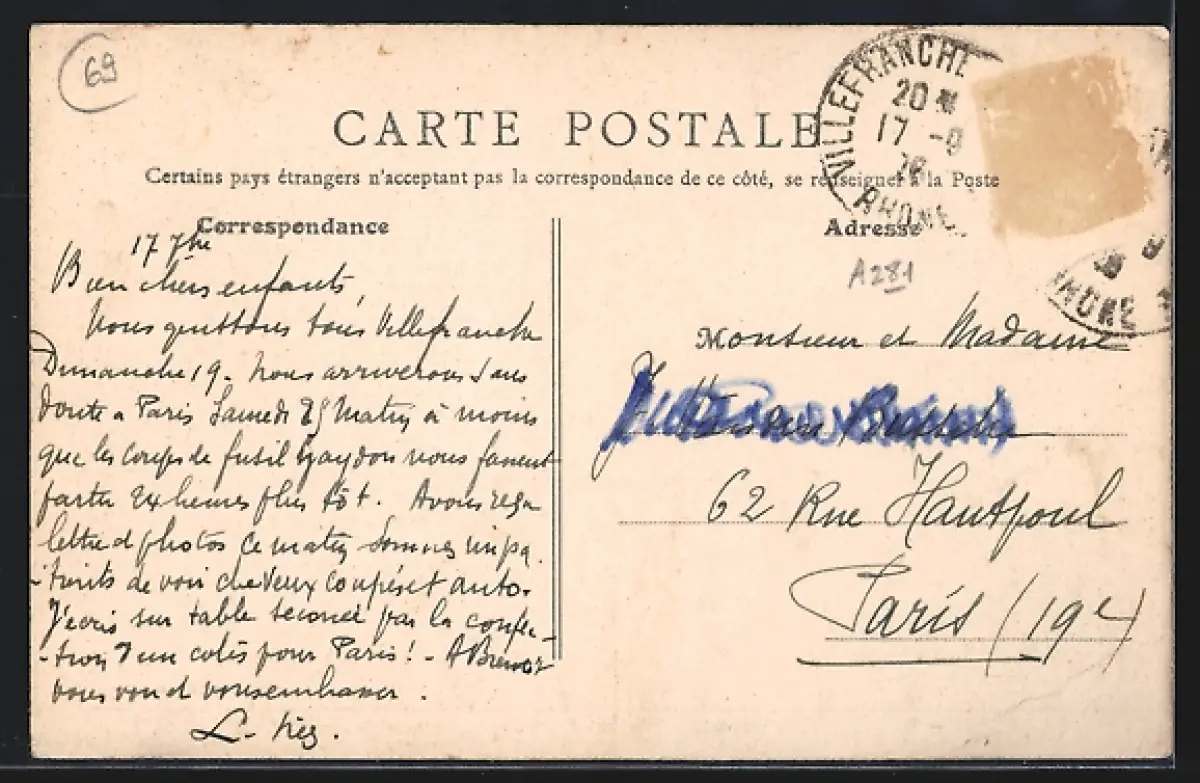 69
CARTE POSTALE
Certains pays étrangers n'acceptant pas la correspondance de ce côté, se renseigner à la Poste
VILLEFRANCHE
20
17 -9
RHONE
RHONE
Correspondance
Adresse
A281
17 7bre
Bien chers enfants,
Nous quittons tous Villefranche
Dimanche 19. Nous arriverons sans
doute a Paris Samedi 25 Matin à moins
que les coups de fusil nous fassent
partir 24 heures plus tôt. Avons reçu
lettre et photos ce matin sommes impa
-tients de voir cheveux coupés et auto.
J'écris sur table secoué par la confec-
-tion d'un colis pour Paris! -
vous embrasser.
L.
Monsieur et Madame
62 Rue Hautpoul
Paris (19e)